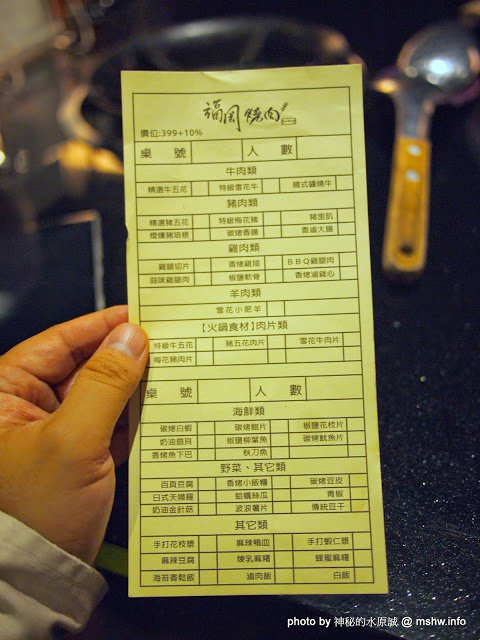 福岡燒肉
價位:399+10%
桌 號 人 數
牛肉類
精選牛五花 特級雪花牛 韓式醬燒牛
豬肉類
精選豬五花 特級梅花豬 豬里肌
煙燻豬培根 碳烤香腸 香滷大腸
雞肉類
雞腿切片 香烤雞翅 BBQ雞腿肉
蒜味雞腿肉 椒鹽軟骨 香烤滷雞心
羊肉類
雪花小肥羊
【火鍋食材】肉片類
特級牛五花 豬五花肉片 雪花牛肉片
梅花豬肉片
桌 號 人 數
海鮮類
碳烤白蝦 碳烤鯧片 椒鹽花枝片
奶油扇貝 椒鹽柳葉魚 碳烤魷魚片
香烤魚下巴 秋刀魚
野菜、其它類
百頁豆腐 香烤小飯糰 碳烤豆皮
日式天婦羅 蛤蠣絲瓜 青椒
奶油金針菇 波浪薯片 傳統豆干
其它類
手打花枝漿 麻辣鴨血 手打蝦仁漿
麻辣豆腐 煉乳麻糬 蜂蜜麻糬
海苔香鬆飯 滷肉飯 白飯
photo by 神秘的水原誠 @ mshw.info